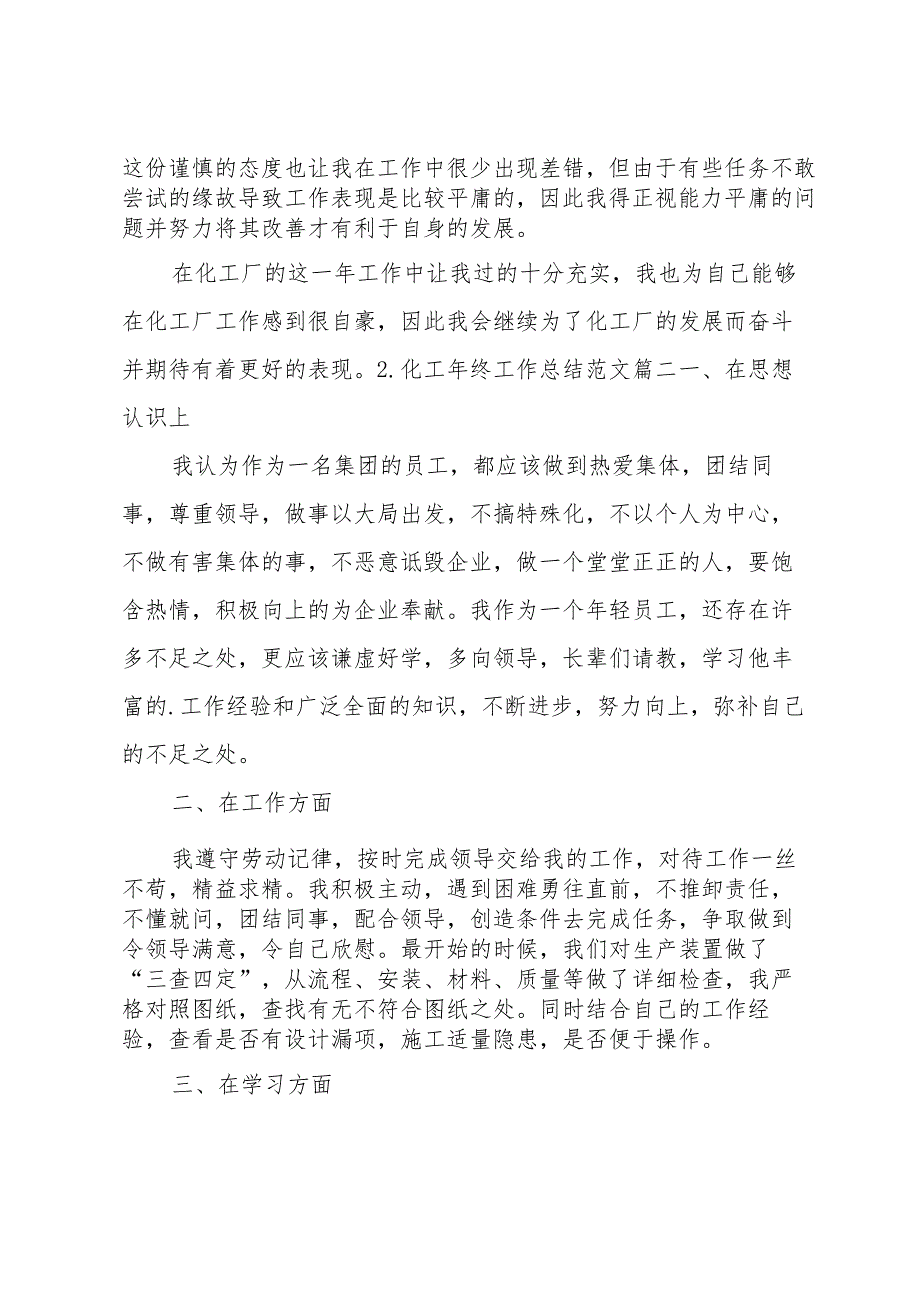 这份谨慎的态度也让我在工作中很少出现差错，但由于有些任务不敢
尝试的缘故导致工作表现是比较平庸的，因此我得正视能力平庸的问
题并努力将其改善才有利于自身的发展。
在化工厂的这一年工作中让我过的十分充实，我也为自己能够
在化工厂工作感到很自豪，因此我会继续为了化工厂的发展而奋斗
并期待有着更好的表现。2.化工年终工作总结范文篇二一、在思想
认识上
我认为作为一名集团的员工，都应该做到热爱集体，团结同
事，尊重领导，做事以大局出发，不搞特殊化，不以个人为中心，
不做有害集体的事，不恶意诋毁企业，做一个堂堂正正的人，要饱
含热情，积极向上的为企业奉献。我作为一个年轻员工，还存在许
多不足之处，更应该谦虚好学，多向领导，长辈们请教，学习他丰
富的.工作经验和广泛全面的知识，不断进步，努力向上，弥补自己
的不足之处。
二、在工作方面
我遵守劳动记律，按时完成领导交给我的工作，对待工作一丝
不苟，精益求精。我积极主动，遇到困难勇往直前，不推卸责任，
不懂就问，团结同事，配合领导，创造条件去完成任务，争取做到
令领导满意，令自己欣慰。最开始的时候，我们对生产装置做了
“三查四定”，从流程、安装、材料、质量等做了详细检查，我严
格对照图纸，查找有无不符合图纸之处。同时结合自己的工作经
验，查看是否有设计漏项，施工适量隐患，是否便于操作。
三、在学习方面